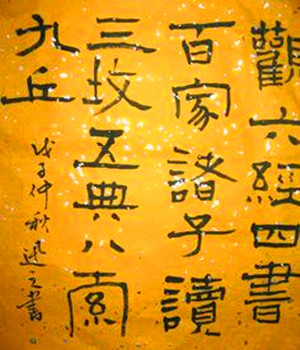 觀六經四書
百家諸子讀
三坟五典八索
九丘
戊子仲秋迅之書